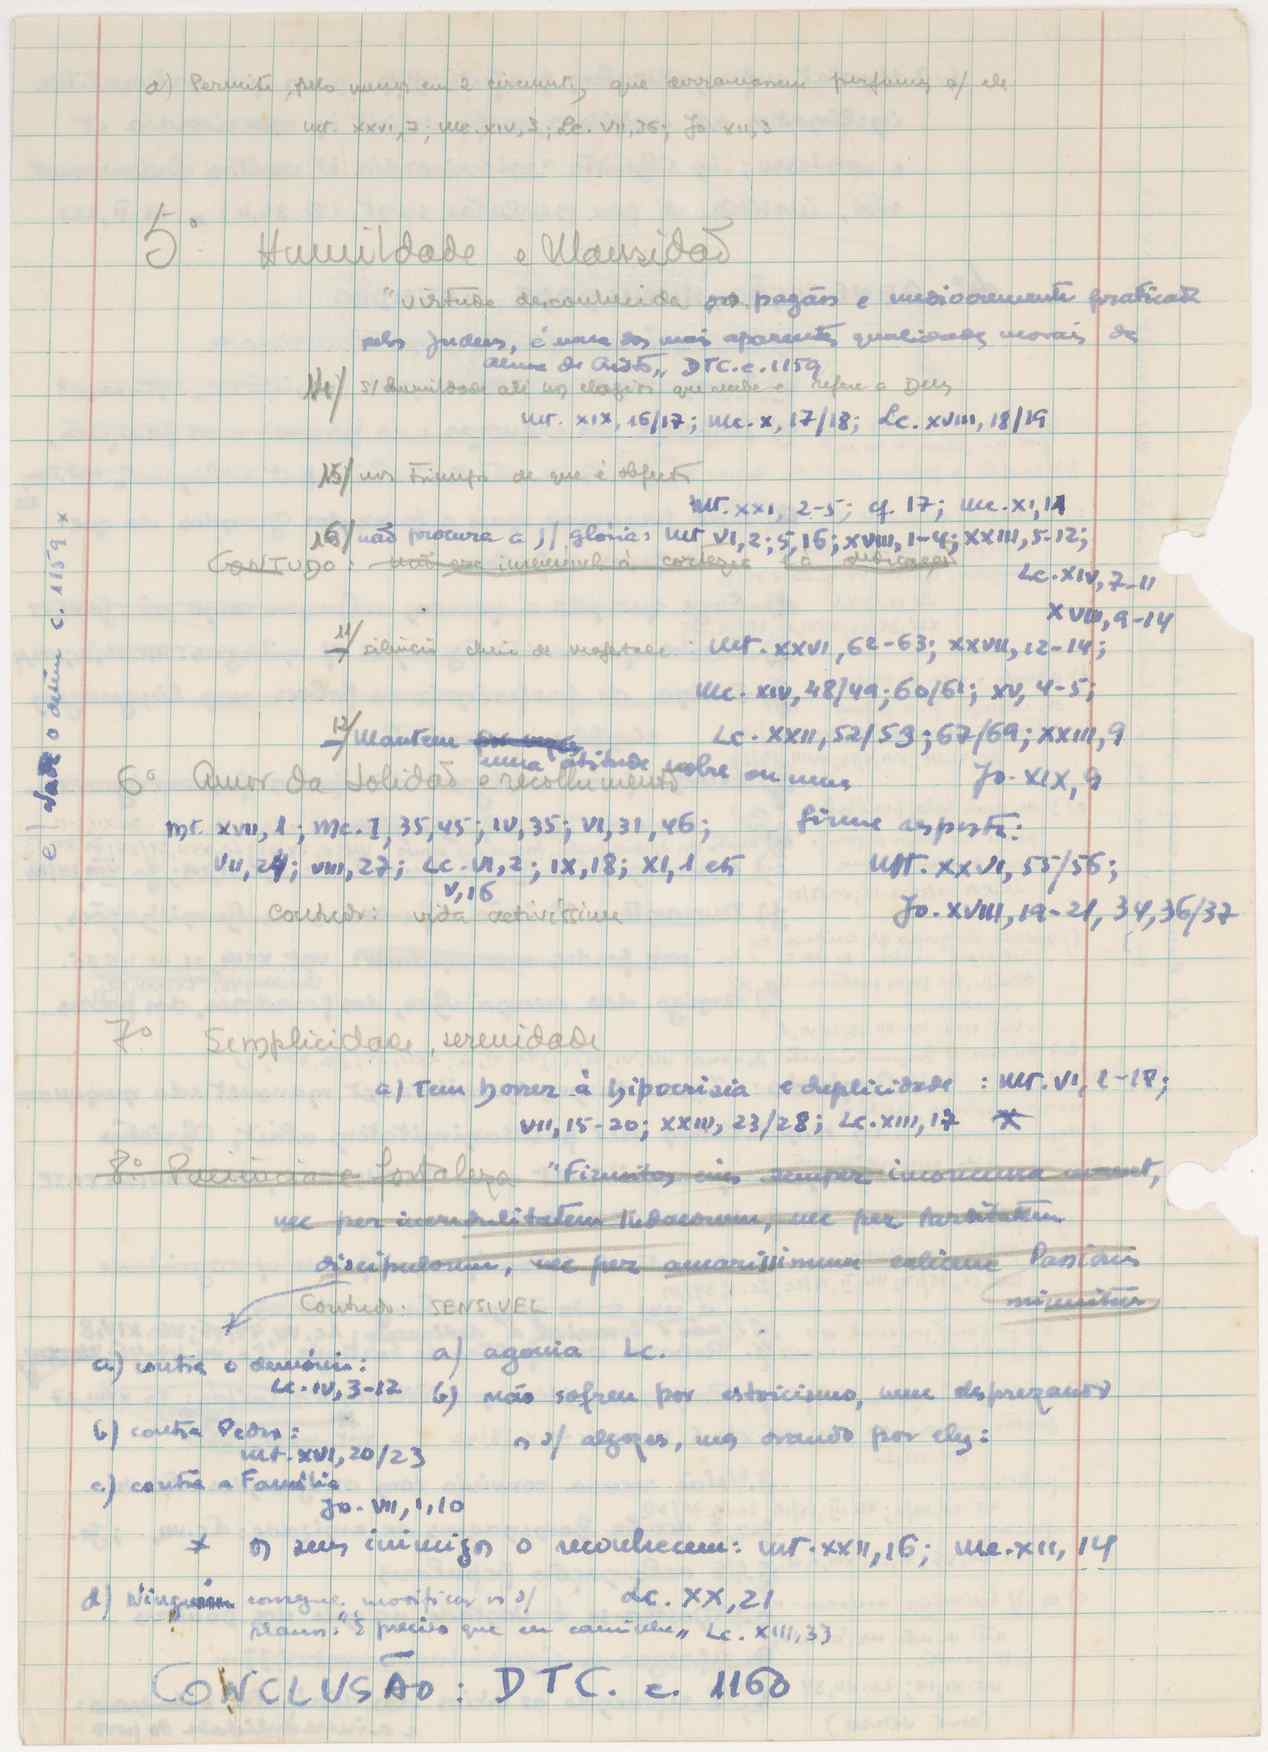 a) Permite, pelo menos em 2 circunsts, que derramassem perfumes s/ ele
Mt. XXVI, 7; Mc. XIV, 3; Lc. VII, 36; Jo. XII, 3
5º Humildade e Mansidão
"virtude desconhecida os pagãos e mediocremente praticada
pelos Judeus, é uma das mais aparentes qualidades morais da
alma de Cristo" DTC. c. 1159
14/ s/ humildade até nos elogios que recebe e refere a Deus
Mt. XIX, 16/17; Mc. X, 17/18; Lc. XVIII, 18/19
15/ nos triunfos de que é objecto
Mt. XXI, 2-5; cf. 17; Mc. XI, 11
16/ não procura a p/ glória: Mt VI, 2; 5, 16; XVIII, 1-4; XXIII, 5-12;
CONTUDO: não era insensível à cortezia e à
Lc. XIV, 7-11
XVIII, 9-14
11/ silêncio cheio de majestade: Mt. XXVI, 62-63; XXVII, 12-14;
Mc. XIV, 48/49; 60/61; XV, 4-5;
12/ Mantem uma atitude nobre ou uma
Lc. XXII, 52/53; 67/69; XXIII, 9
6º Amor da Solidão e recolhimento
Jo. XIX, 9
Mt. XVII, 1; Mc. I, 35, 45; IV, 35; VI, 31, 46;
firme resposta:
VII, 24; VIII, 27; Lc. VI, 2; IX, 18; XI, 1 etc
V, 16
Mt. XXVI, 55/56;
Contudo: vida activíssima
Jo. XVIII, 19-21, 34, 36/37
e c. 1159 x
7º Semplicidade, serenidade
a) Tem horror à hipocrisia e duplicidade: Mt. VI, 1-18;
VII, 15-20; XXIII, 23/28; Lc. XIII, 17 *
8º Paciência e fortaleza "Firmitas eius semper inconcussa manet,
nec per incredulitatem Iudaeorum, nec per tarditatem
discipulorum, nec per amarissimum calicem Passionis
minuitur
Contudo: SENSIVEL
a) contra o demónio:
Lc. IV, 3-12
a) agonia Lc.
b) não sofreu por estoicismo, nem desprezando
os s/ algozes, mas orando por eles:
b) contra Pedro:
Mt. XVI, 20/23
c) contra a Família
Jo. VII, 1, 10
* os seus inimigos o reconhecem: Mt. XXII, 16; Mc. XII, 14
Lc. XX, 21
d) Ninguém consegue modificar os s/
planos: "É preciso que eu caminhe" Lc. XIII, 33
CONCLUSÃO: DTC. c. 1160